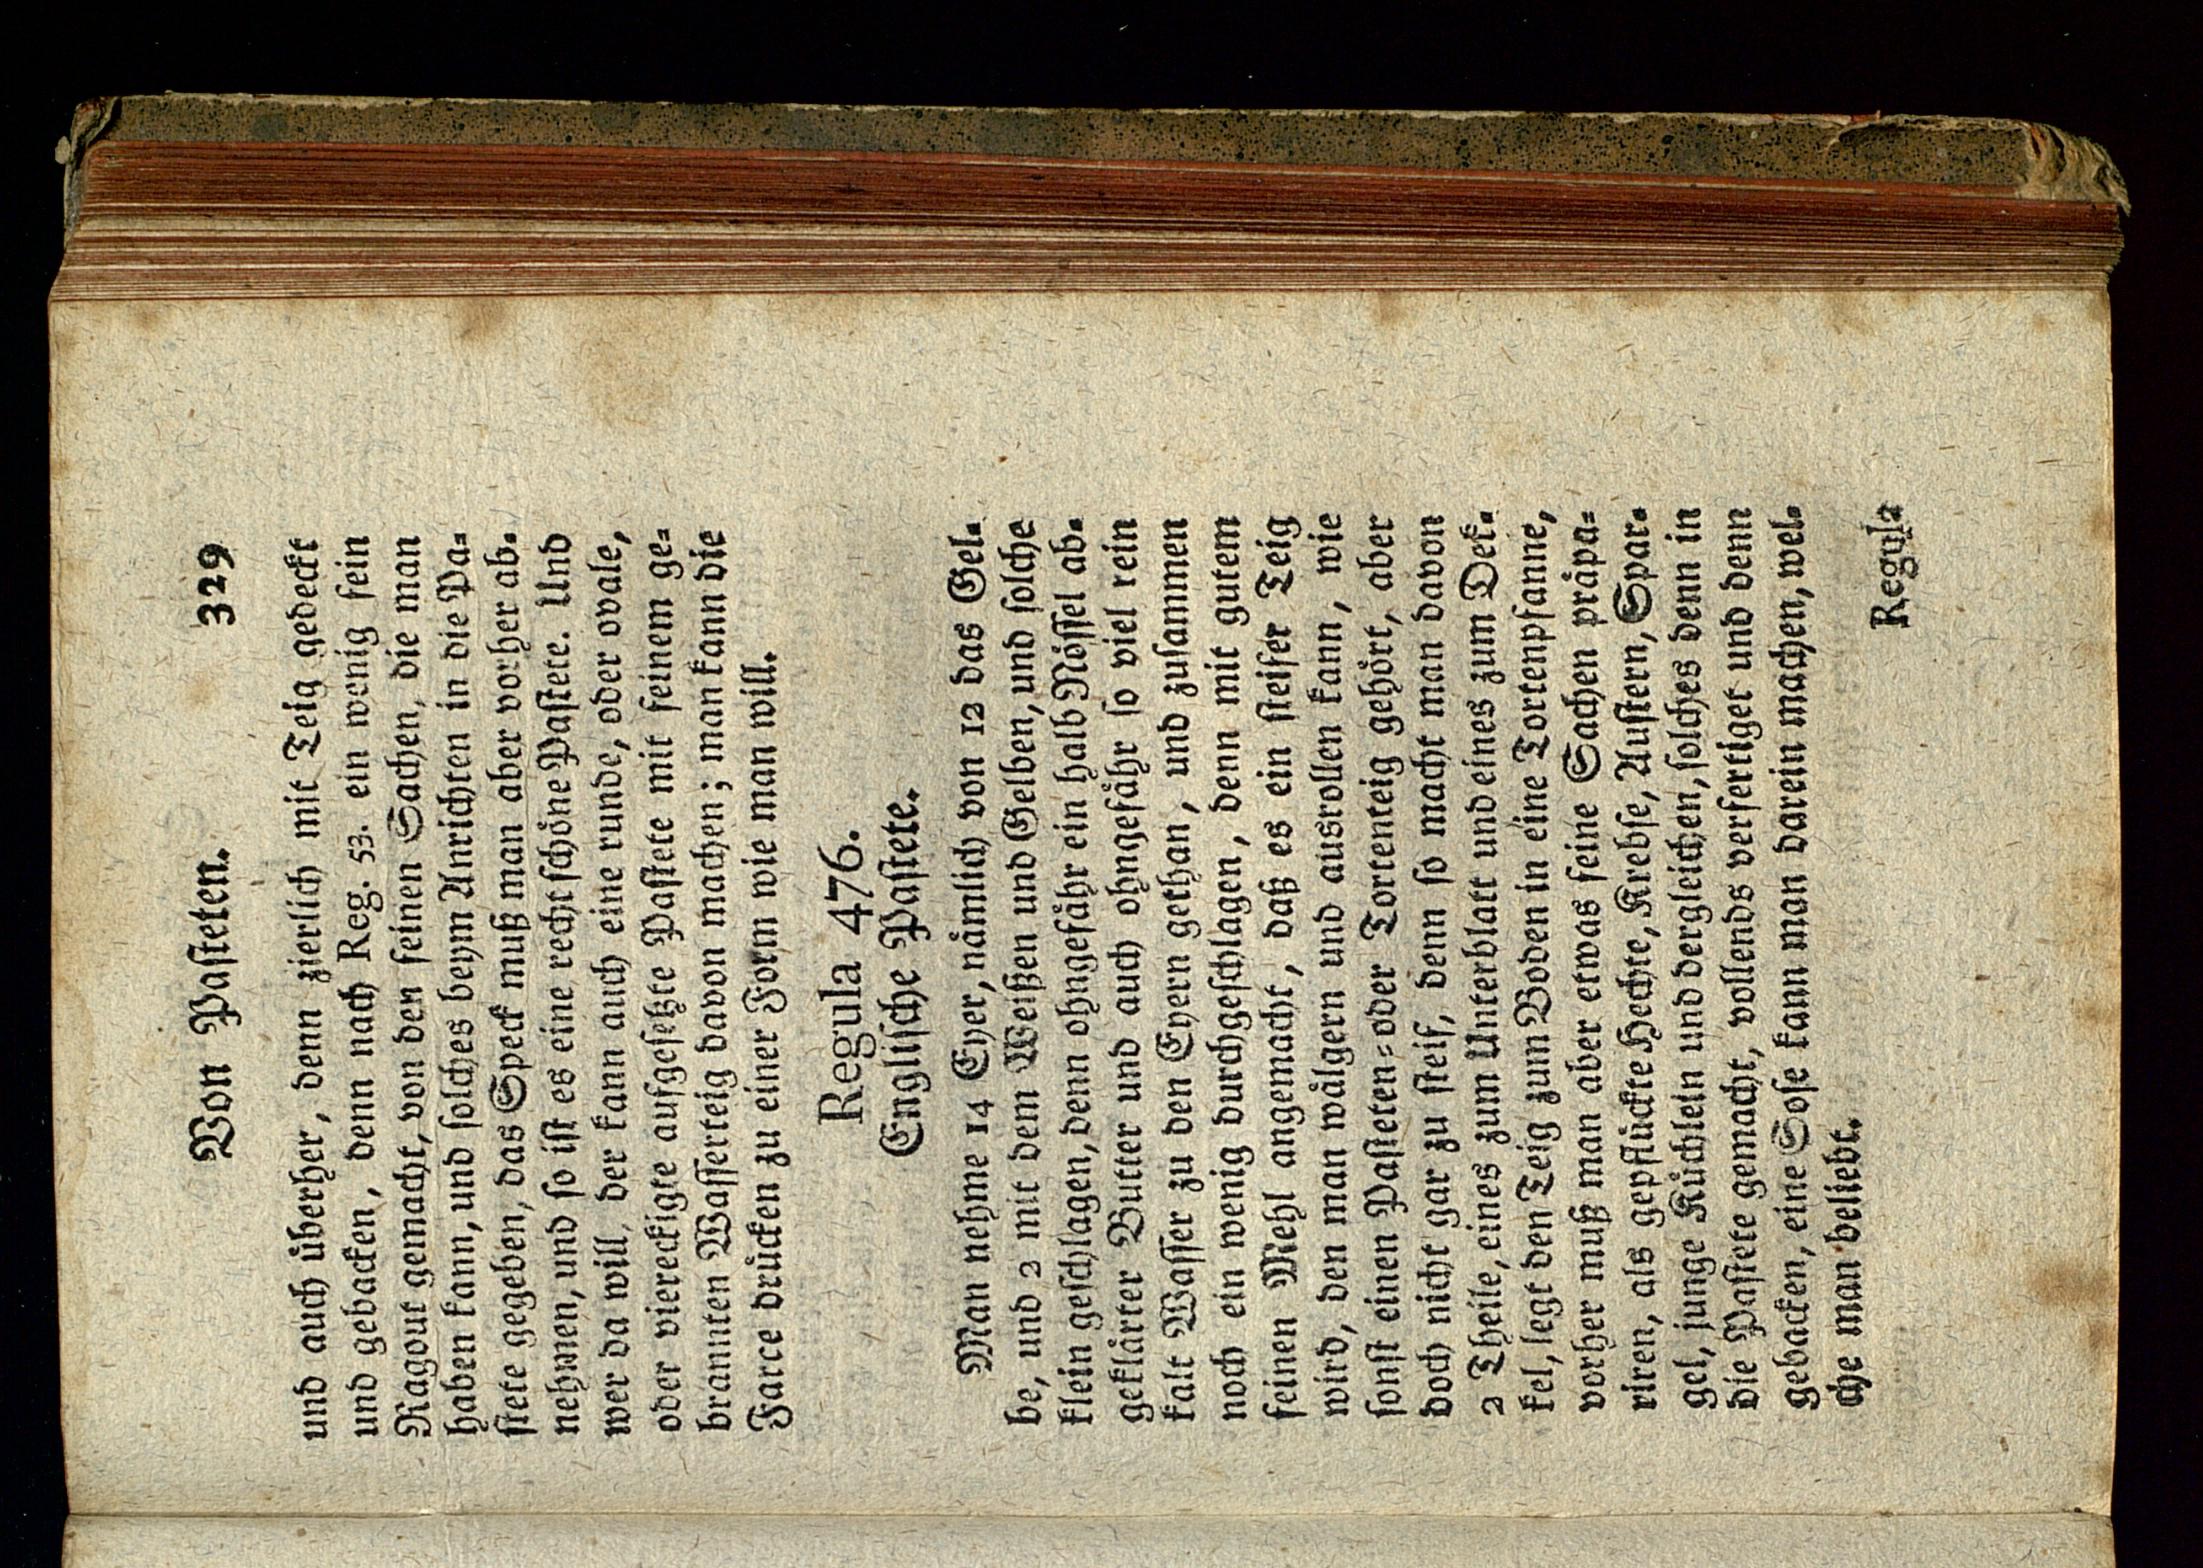 Von Pasteten. 329
und auch überher, denn zierlich mit Teig gedeckt
und gebacken, denn nach Reg. 53. ein wenig fein
Ragout gemacht, von den feinen Sachen, die man
haben kann, und solches beym Anrichten in die Pa-
stete gegeben, das Speck muß man aber vorher ab-
nehmen, und so ist es eine recht schöne Pastete. Und
wer da will, der kann auch eine runde, oder ovale,
oder viereckigte aufgesetzte Pastete mit feinem ge-
brannten Wasserteig davon machen; man kann die
Farce drücken zu einer Form wie man will.
Regula 476.
Englische Pastete.
Man nehme 14 Eyer, nämlich von 12 das Gel-
be, und 2 mit dem Weißen und Gelben, und solche
klein geschlagen, denn ohngefähr ein halb Nössel ab-
geklärter Butter und auch ohngefähr so viel rein
kalt Wasser zu den Eyern gethan, und zusammen
noch ein wenig durchgeschlagen, denn mit gutem
feinen Mehl angemacht, daß es ein steifer Teig
wird, den man wälgern und ausrollen kann, wie
sonst einen Pasteten- oder Tortenteig gehört, aber
doch nicht gar zu steif, denn so macht man davon
2 Theile, eines zum Unterblatt und eines zum Dek-
kel, legt den Teig zum Boden in eine Tortenpfanne,
vorher muß man aber etwas feine Sachen präpa-
riren, als gepflückte Hechte, Krebse, Austern, Spar-
gel, junge Küchlein und dergleichen, solches denn in
die Pastete gemacht, vollends verfertiget und denn
gebacken, eine Sose kann man darein machen, wel-
che man beliebt.
Regula